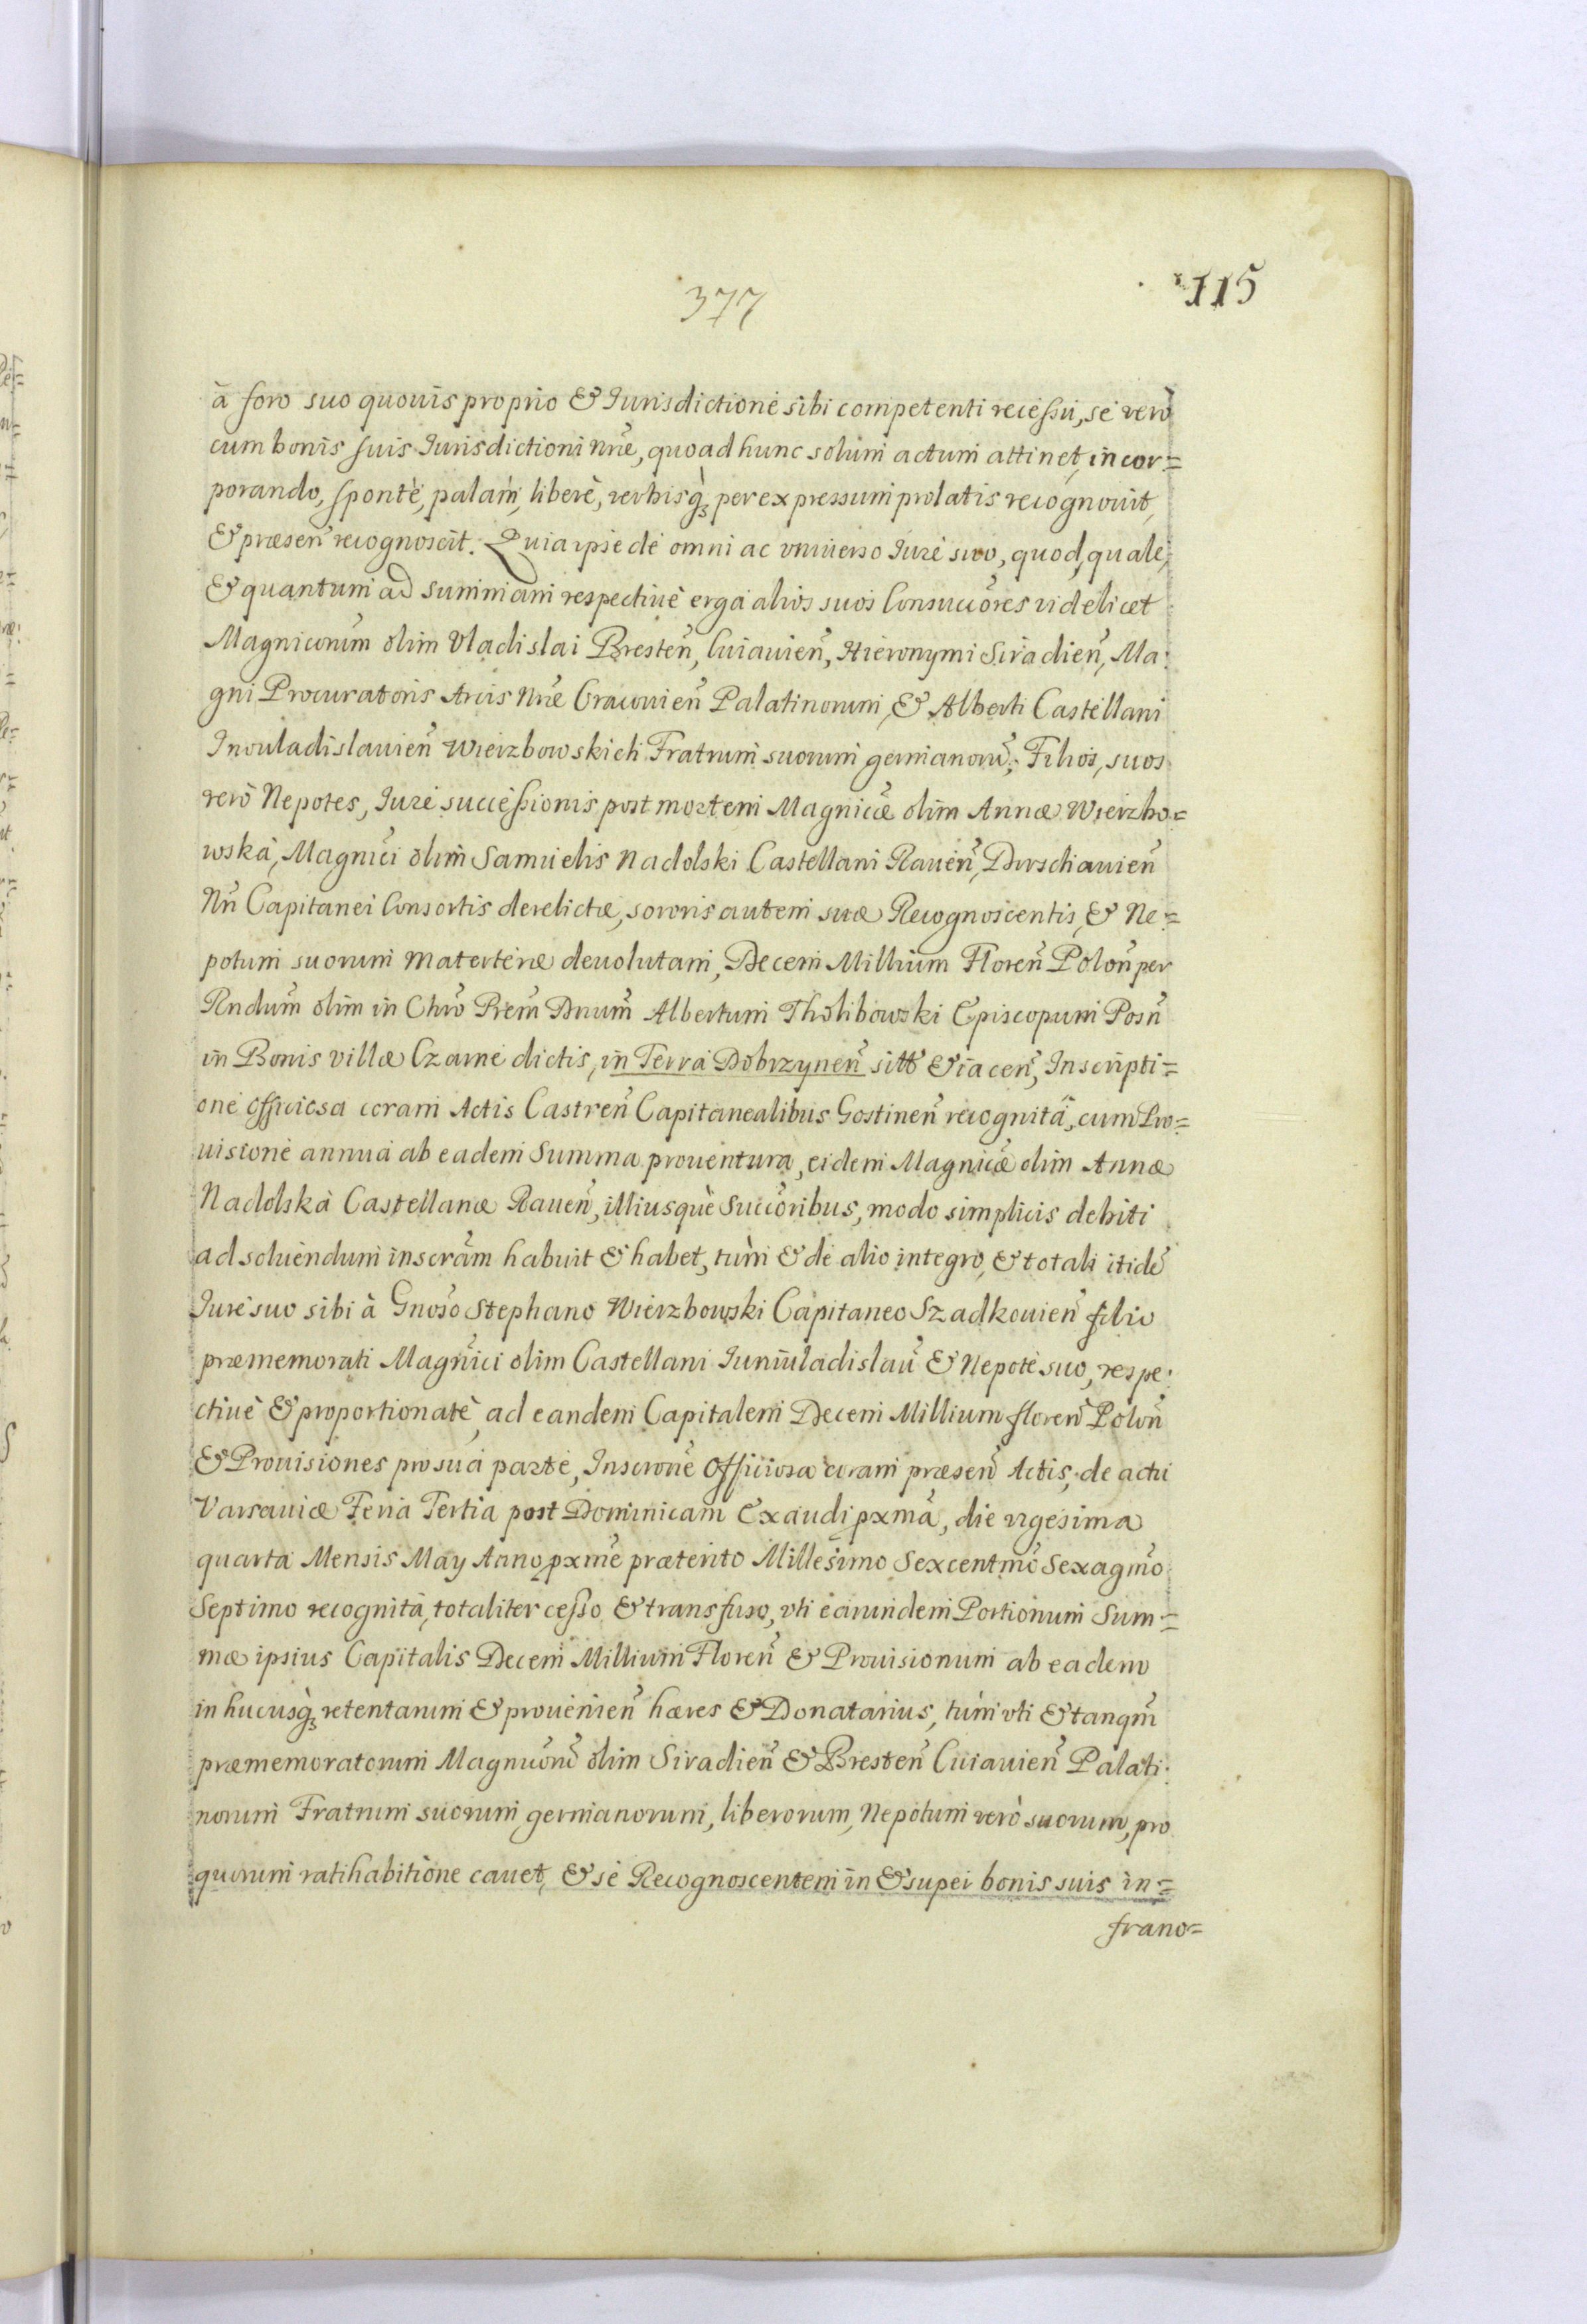 377
115
à foro suo quouis proprio & Jurisdictione sibi competenti recessu, se verò
cum bonis suis Jurisdictioni Nrẽ, quoad hunc solum actum attinet, incor=
porando, sponte, palam, liberè, verbisq̀ꝫ per expressum prolatis recognouit,
& præseñ recognoscit. Quia ipse de omni ac vniuerso Jure suo, quod, quale,
& quantum ad summam respectiuè erga alios suos Consuccõres videlicet
Magnicorũm olim Vladislai Bresteñ, Cuiauieñ, Hieronymi Siradieñ, Ma:
gni Procuratoris Arcis Nrẽ Cracouieñ Palatinorum, & Alberti Castellani
Inouladislauieñ Wierzbowskich Fratrum suorum germanorũ, Filios, suos
verò Nepotes, Jure successionis post mortem Magnicæ̃ olim Annæ Wierzbo=
wska, Magnĩci olim Samuelis Nadolski Castellani Raueñ, Dirschauieñ
Nrĩ Capitanei Consortis derelictæ, sororis autem suæ Recognoscentis, & Ne=
potum suorum Materteræ deuolutam, Decem Millium Floreñ Poloñ per
Rndum̃ olim in Chrõ Prem̃ Dnum̃ Albertum Tholibowski Episcopum Posñ
in Bonis villæ Czarne dictis, in Terra Dobrzyneñ sitt̃ & iaceñ, Inscripti=
one officiosa coram Actis Castreñ Capitanealibus Gostineñ recognita, cum Pro=
uisione annua ab eadem Summa prouentura, eidem Magnicæ̃ olim Annæ
Nadolska Castellanæ Raueñ, illiusquè Succõribus, modo simplicis debiti
ad soluendum inscrãm habuit & habet, tùm & de alio integro, & totali itidẽ
Jure suo sibi à Gnoso Stephano Wierzbowski Capitaneo Szadkouieñ filio
præmemorati Magnĩci olim Castellani Juniuladislaũ & Nepote suo, respe:
ctiuè & proportionatè, ad eandem Capitalem Decem Millium floreñ Poloñ
& Prouisiones pro sua parte, Inscronẽ officiosa coram præseñ Actis, de actu
Varsauiæ Feria Tertia post Dominicam Exaudi pxmã, die vigesima
quarta Mensis May Anno pxmẽ præterito Millesimo Sexcentmõ Sexagmõ
Septimo recognita, totaliter cesso & transfuso, vti earundem Portionum Sum=
mæ ipsius Capitalis Decem Millium Floreñ & Prouisionum ab eadem
in hucusq̀ꝫ retentarum & prouenieñ hæres & Donatarius, tùm vti & tanqm̃
præmemoratorum Magnicõrũ olim Siradieñ & Bresteñ Cuiauieñ Palati:
norum Fratrum suorum germanorum, liberorum, Nepotum verò suorum, pro
quorum ratihabitione cauet, & se Recognoscentem in & super bonis suis in=
frano=